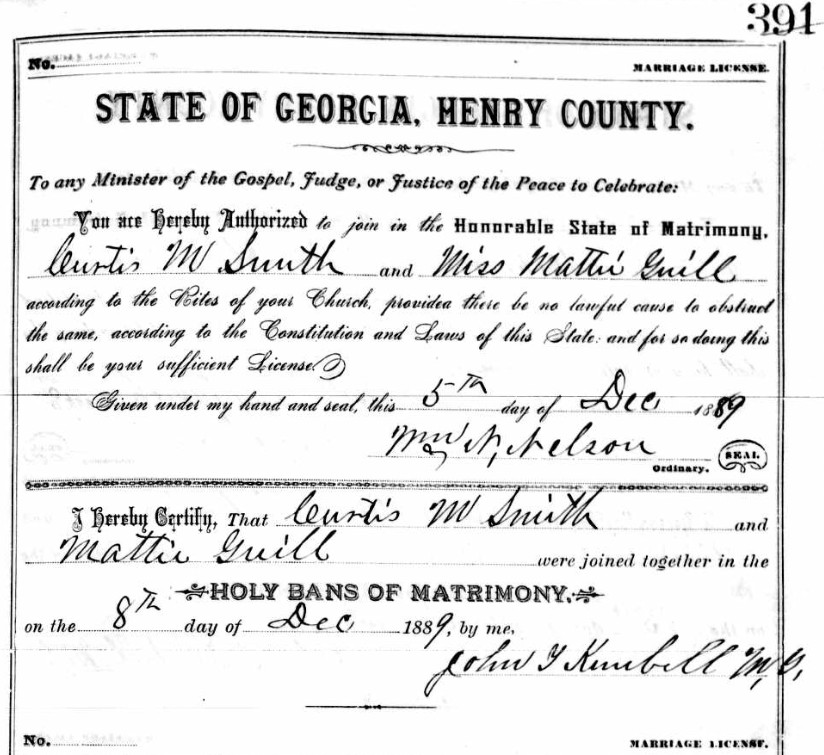 391
No. MARRIAGE LICENSE.
STATE OF GEORGIA, HENRY COUNTY.
To any Minister of the Gospel, Judge, or Justice of the Peace to Celebrate:
You are Hereby Authorized to join in the Honorable State of Matrimony,
Curtis M Smith and Miss Mattie Guill
according to the Rites of your Church, provided there be no lawful cause to obstruct
the same, according to the Constitution and Laws of this State: and for so doing this
shall be your sufficient License.
Given under my hand and seal, this 5th day of Dec 1889
Wm N, Nelson SEAL
Ordinary.
I Hereby Certify, That Curtis M Smith and
Mattie Guill were joined together in the
HOLY BANS OF MATRIMONY,
on the 8th day of Dec 1889, by me,
John T Kimbell M, G,
No. MARRIAGE LICENSE.